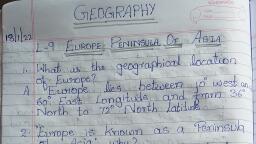 GEOGRAPHY
13/1/22
L-9 EUROPE: PENINSULA OF ASIA
1. What is the geographical location
of Europe?
A. Europe lies between 10° west and
60° East Longitude and from 36°
North to 72° North latitude.
2. Europe is known as a Peninsula
of Asia why?